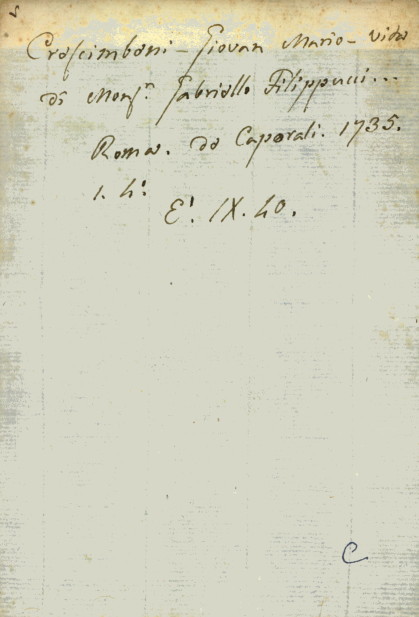 Crescimbeni - Giovan Mario - vita
di Monsr. Gabriello Filippucci...
Roma. de Caporali. 1735.
1. 4°
E'. IX. 40.
C